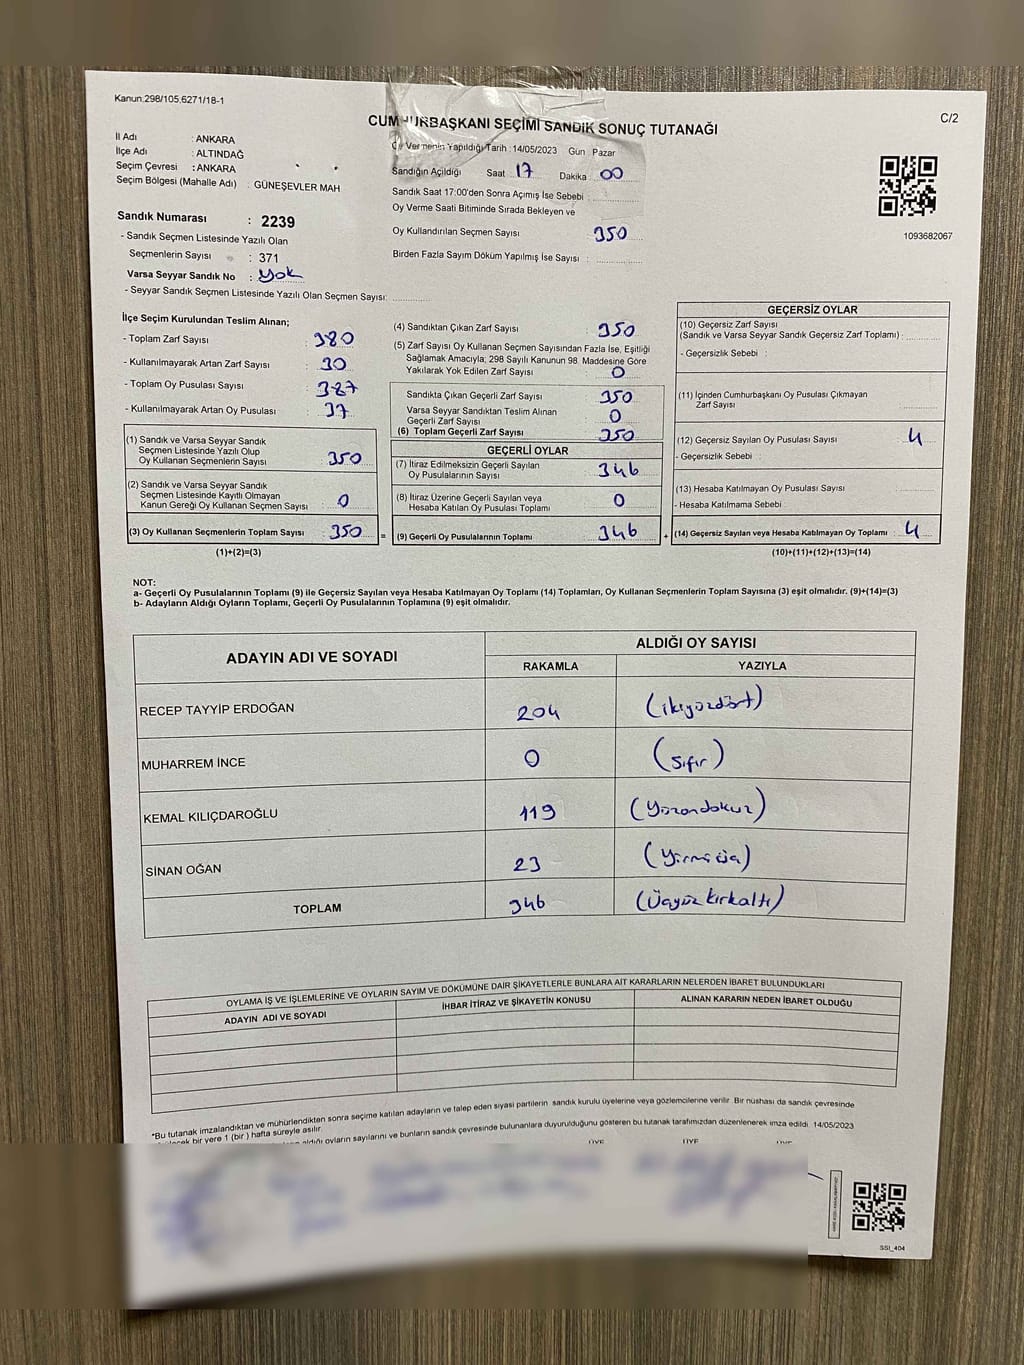 Kanun.298/105,6271/18-1
C/2
CUMHURBAŞKANI SEÇİMİ SANDIK SONUÇ TUTANAĞI
İl Adı : ANKARA
İlçe Adı : ALTINDAĞ
Seçim Çevresi : ANKARA
Seçim Bölgesi (Mahalle Adı) : GÜNEŞEVLER MAH
Oy Vermenin Yapıldığı Tarih : 14/05/2023 Gün Pazar
Sandığın Açıldığı Saat 17 Dakika 00
Sandık Saat 17:00'den Sonra Açımış İse Sebebi :
Oy Verme Saati Bitiminde Sırada Bekleyen ve
Oy Kullandırılan Seçmen Sayısı : 350
Birden Fazla Sayım Döküm Yapılmış İse Sayısı :
1093682067
Sandık Numarası : 2239
- Sandık Seçmen Listesinde Yazılı Olan
Seçmenlerin Sayısı : 371
Varsa Seyyar Sandık No : Yok
- Seyyar Sandık Seçmen Listesinde Yazılı Olan Seçmen Sayısı:
İlçe Seçim Kurulundan Teslim Alınan;
- Toplam Zarf Sayısı : 380
- Kullanılmayarak Artan Zarf Sayısı : 30
- Toplam Oy Pusulası Sayısı : 387
- Kullanılmayarak Artan Oy Pusulası : 37
(1) Sandık ve Varsa Seyyar Sandık
Seçmen Listesinde Yazılı Olup
Oy Kullanan Seçmenlerin Sayısı : 350
(2) Sandık ve Varsa Seyyar Sandık
Seçmen Listesinde Kayıtlı Olmayan
Kanun Gereği Oy Kullanan Seçmen Sayısı : 0
(3) Oy Kullanan Seçmenlerin Toplam Sayısı : 350 =
(1)+(2)=(3)
(4) Sandıktan Çıkan Zarf Sayısı : 350
(5) Zarf Sayısı Oy Kullanan Seçmen Sayısından Fazla İse, Eşitliği
Sağlamak Amacıyla; 298 Sayılı Kanunun 98. Maddesine Göre
Yakılarak Yok Edilen Zarf Sayısı : 0
Sandıkta Çıkan Geçerli Zarf Sayısı : 350
Varsa Seyyar Sandıktan Teslim Alınan
Geçerli Zarf Sayısı : 0
(6) Toplam Geçerli Zarf Sayısı : 350
GEÇERLİ OYLAR
(7) İtiraz Edilmeksizin Geçerli Sayılan
Oy Pusulalarının Sayısı : 346
(8) İtiraz Üzerine Geçerli Sayılan veya
Hesaba Katılan Oy Pusulası Toplamı : 0
(9) Geçerli Oy Pusulalarının Toplamı : 346 +
GEÇERSİZ OYLAR
(10) Geçersiz Zarf Sayısı
(Sandık ve Varsa Seyyar Sandık Geçersiz Zarf Toplamı) :
- Geçersizlik Sebebi :
(11) İçinden Cumhurbaşkanı Oy Pusulası Çıkmayan
Zarf Sayısı :
(12) Geçersiz Sayılan Oy Pusulası Sayısı : 4
- Geçersizlik Sebebi :
(13) Hesaba Katılmayan Oy Pusulası Sayısı :
- Hesaba Katılmama Sebebi :
(14) Geçersiz Sayılan veya Hesaba Katılmayan Oy Toplamı : 4
(10)+(11)+(12)+(13)=(14)
NOT:
a- Geçerli Oy Pusulalarının Toplamı (9) ile Geçersiz Sayılan veya Hesaba Katılmayan Oy Toplamı (14) Toplamları, Oy Kullanan Seçmenlerin Toplam Sayısına (3) eşit olmalıdır. (9)+(14)=(3)
b- Adayların Aldığı Oyların Toplamı, Geçerli Oy Pusulalarının Toplamına (9) eşit olmalıdır.
ADAYIN ADI VE SOYADI
ALDIĞI OY SAYISI
RAKAMLA YAZIYLA
RECEP TAYYİP ERDOĞAN 204 (ikiyüzdört)
MUHARREM İNCE 0 (Sıfır)
KEMAL KILIÇDAROĞLU 119 (Yüzondokuz)
SİNAN OĞAN 23 (Yirmiüç)
TOPLAM 346 (Üçyüzkırkaltı)
OYLAMA İŞ VE İŞLEMLERİNE VE OYLARIN SAYIM VE DÖKÜMÜNE DAİR ŞİKAYETLERLE BUNLARA AİT KARARLARIN NELERDEN İBARET BULUNDUKLARI
ADAYIN ADI VE SOYADI İHBAR İTİRAZ VE ŞİKAYETİN KONUSU ALINAN KARARIN NEDEN İBARET OLDUĞU
*Bu tutanak imzalandıktan ve mühürlendikten sonra seçime katılan adayların ve talep eden siyasi partilerin sandık kurulu üyelerine veya gözlemcilerine verilir. Bir nüshası da sandık çevresinde
bir yere 1 (bir) hafta süreyle asılır.
aldığı oyların sayılarını ve bunların sandık çevresinde bulunanlara duyurulduğunu gösteren bu tutanak tarafımızdan düzenlenerek imza edildi. 14/05/2023
ÜYE ÜYE ÜYE
SSI_404